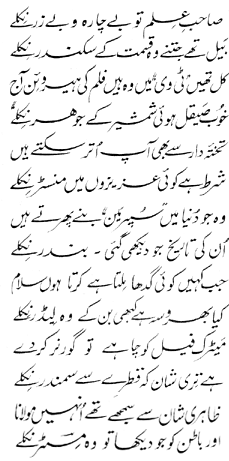 صاحبِ علم تو بے چارہ و بے زر نکلے
بیل تھے جتنے وہ قیمت کے سکندر نکلے
کل تھیں ٹی وی میں وہ ہیں فلم کی ہیروئن آج
خوب صیقل ہوئی شمشیر کے جوہر نکلے
تختۂ دار سے بھی آپ اُتر سکتے ہیں
شرط ہے کوئی عزیزوں میں منسٹر نکلے
وہ جو دنیا میں سُپر مین بنے پھرتے ہیں
اُن کی تاریخ جو دیکھی گئی ۔ بندر نکلے
جب کہیں کوئی گدھا ملتا ہے کرتا ہوں سلام
کیا بھروسہ ہے کبھی بن کے وہ لیڈر نکلے
میٹرک فیل کو چاہے تو گورنر کر دے
ہے تری شان کہ قطرے سے سمندر نکلے
ظاہری شان سے سمجھے تھے اُنہیں مولانا
اور باطن کو جو دیکھا تو وہ مسٹر نکلے